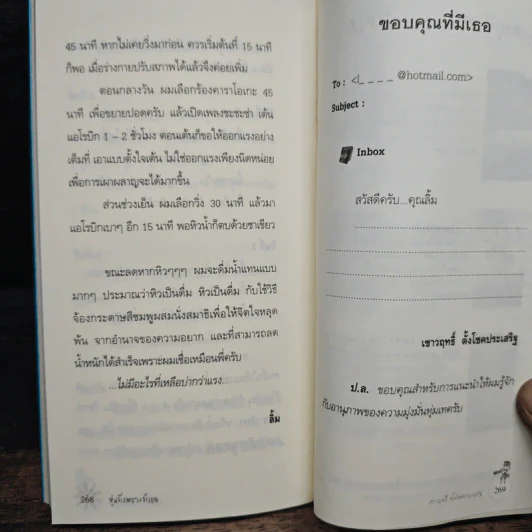 45 นาที หากไม่เคยวิ่งมาก่อน ควรเริ่มต้นที่ 15 นาที
ก็พอ เมื่อร่างกายปรับสภาพได้แล้วจึงค่อยเพิ่ม
ตอนกลางวัน ผมเลือกร้องคาราโอเกะ 45
นาที เพื่อขยายปอดครับ แล้วเปิดเพลงชะชะช่า เต้น
แอโรบิก 1 – 2 ชั่วโมง ตอนเต้นก็ขอให้ออกแรงอย่าง
เต็มที่ เอาแบบตั้งใจเต้น ไม่ใช่ออกแรงเพียงนิดหน่อย
เพื่อการเผาผลาญจะได้มากขึ้น
ส่วนช่วงเย็น ผมเลือกวิ่ง 30 นาที แล้วมา
แอโรบิกเบาๆ อีก 15 นาที พอหิวน้ำก็ตบด้วยชาเขียว
ขณะลดหากหิวๆๆๆ ผมจะดื่มน้ำแทนแบบ
มากๆ ประมาณว่าหิวเป็นดื่ม หิวเป็นดื่ม กับใช้วิธี
จ้องกระดาษสีชมพูผสมนั่งสมาธิเพื่อให้จิตใจหลุด
พ้น จากอำนาจของความอยาก และที่สามารถลด
น้ำหนักได้สำเร็จเพราะผมเชื่อเหมือนพี่ครับ
...ไม่มีอะไรที่เหลือบ่ากว่าแรง...
ลิ้ม
268
ขอบคุณที่มีเธอ
To : <l_ _ _ _ @hotmail.com>
Subject :
Inbox
สวัสดีครับ...คุณลิ้ม
เชาวฤทธิ์ ตั้งโชคประเสริฐ
ป.ล. ขอบคุณสำหรับการแนะนำให้ผมรู้จัก
กับอานุภาพของความมุ่งมั่นทุ่มเทครับ
269